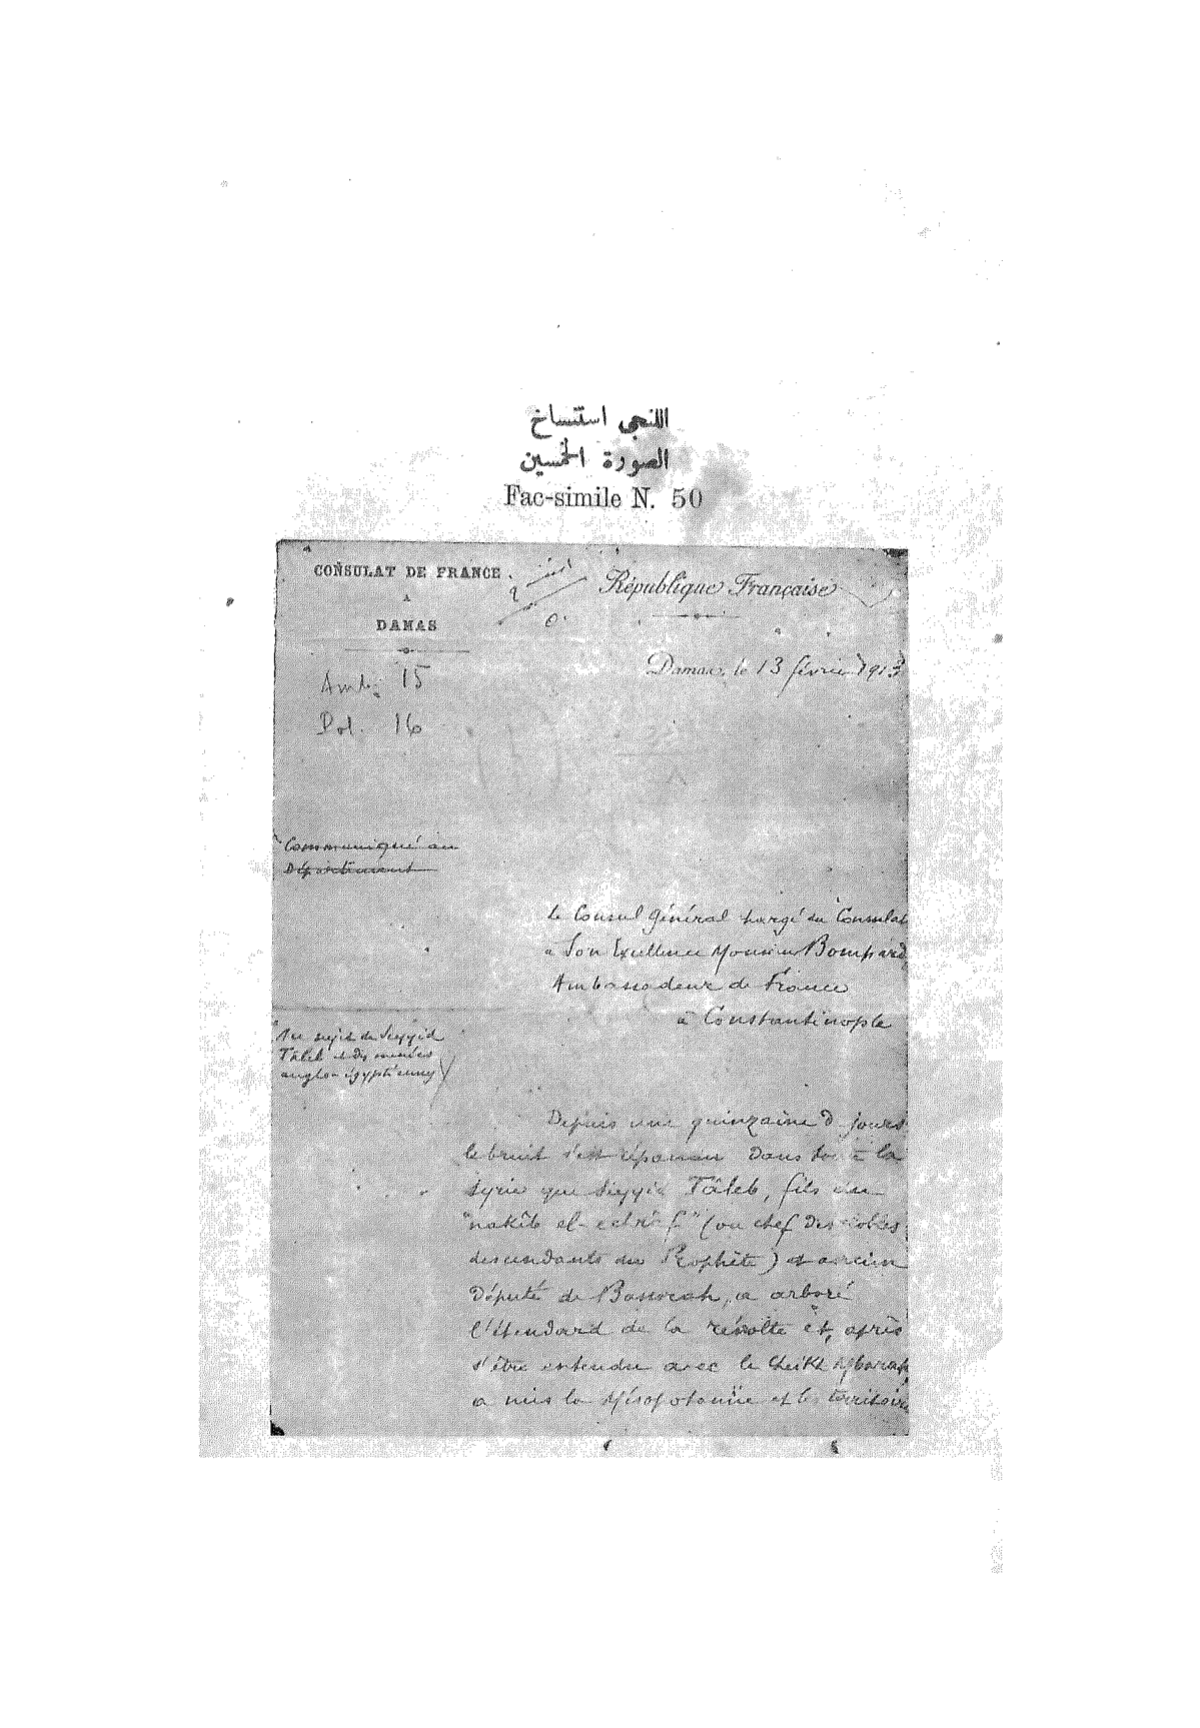 اللنجى استنساخ
الصورة الخمسين
Fac-simile N. 50
CONSULAT DE FRANCE
A
DAMAS
République Française
Damas, le 13 février 1913
Amb. 15
Pol. 16
Communiqué au
Département
Le Consul Général chargé du Consulat
à Son Excellence Monsieur Bompard
Ambassadeur de France
à Constantinople
Au sujet de Seyyid
Tâleb et des menées
anglo-égyptiennes
Depuis une quinzaine de jours
le bruit s'est répandu dans toute la
Syrie que Seyyid Tâleb, fils du
"nakîb el-echrâf" (ou chef des nobles
descendants du Prophète) et ancien
Député de Bassorah, a arboré
l'étendard de la révolte et, après
s'être entendu avec le Cheikh Mbarak,
a mis la Mésopotamie et les territoires